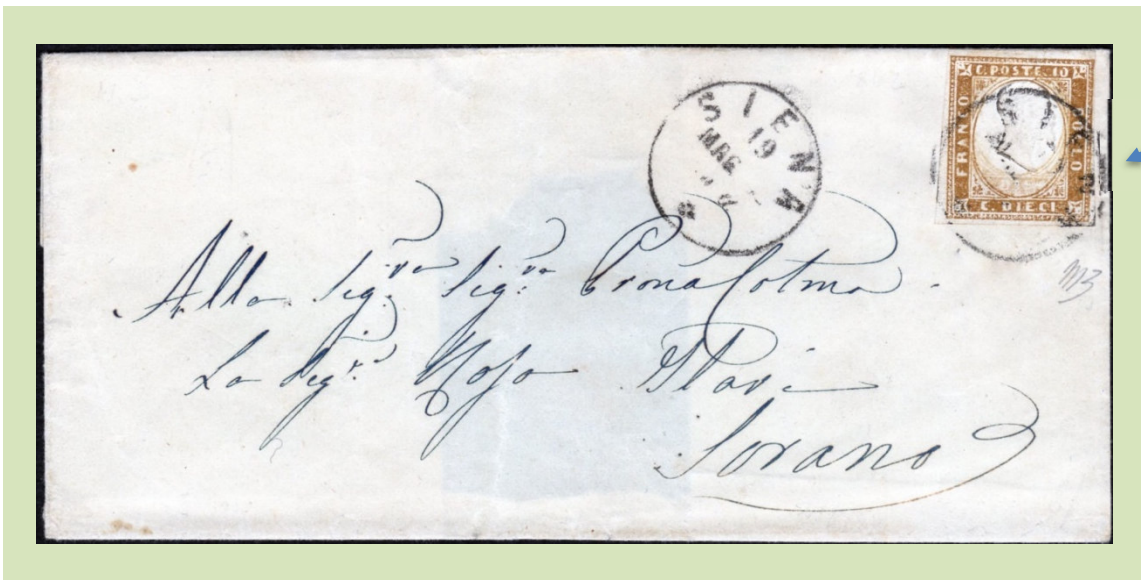 C. POSTE 10
FRANCO
BOLLO
C. DIECI
SIENA
19
MAG
SIENA
Alla Sig.ra Sig.ra Prona Colma
La Sig.ra Rosa
Sorano